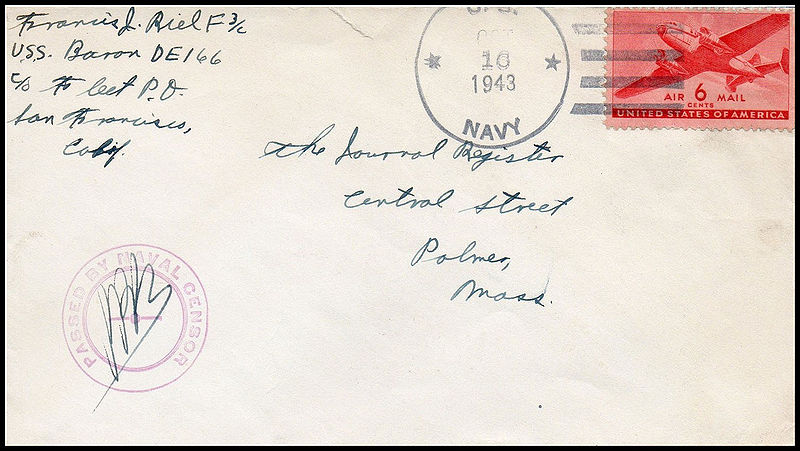 Francis J. Riel F 3/c
U.S.S. Baron DE166
c/o Fleet P.O.
San Francisco,
Calif.
OCT
16
1943
NAVY
AIR 6 MAIL
CENTS
UNITED STATES OF AMERICA
The Journal Register
Central Street
Palmer,
Mass.
PASSED BY NAVAL CENSOR